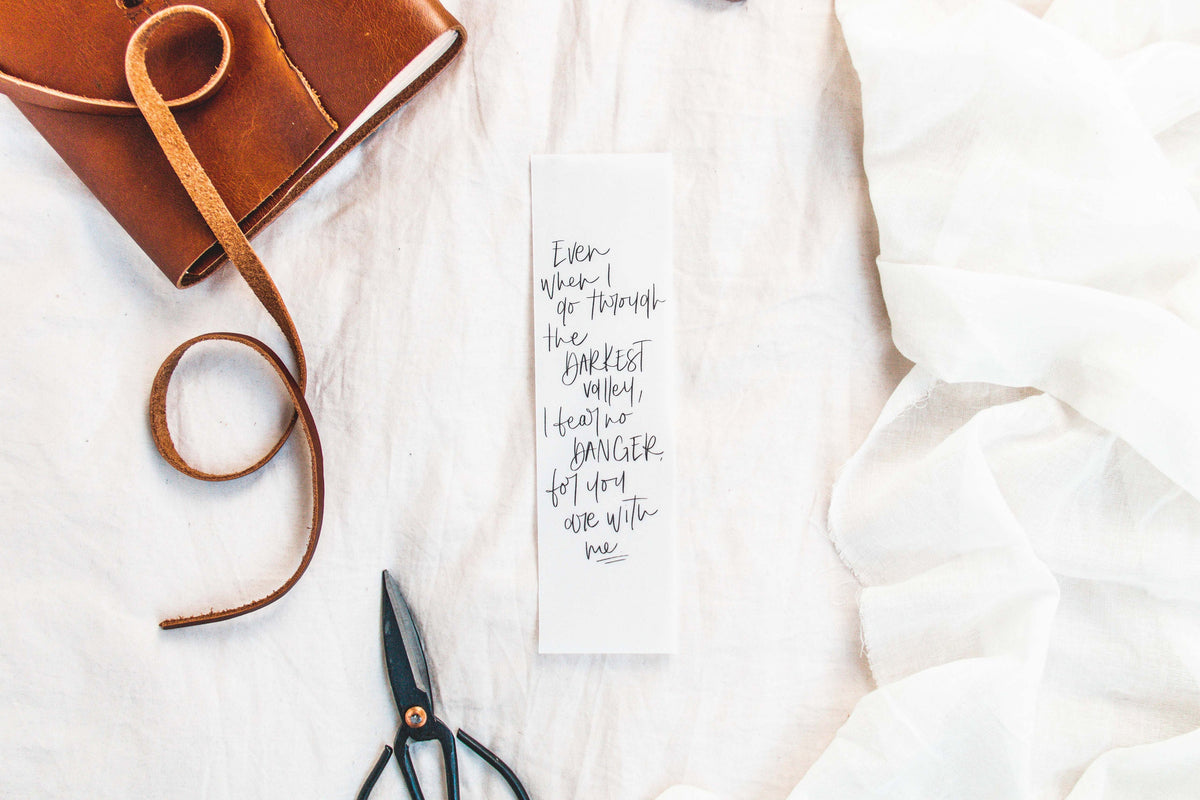 Even
when I
go through
the
DARKEST
valley,
I fear no
DANGER,
for you
are with
me